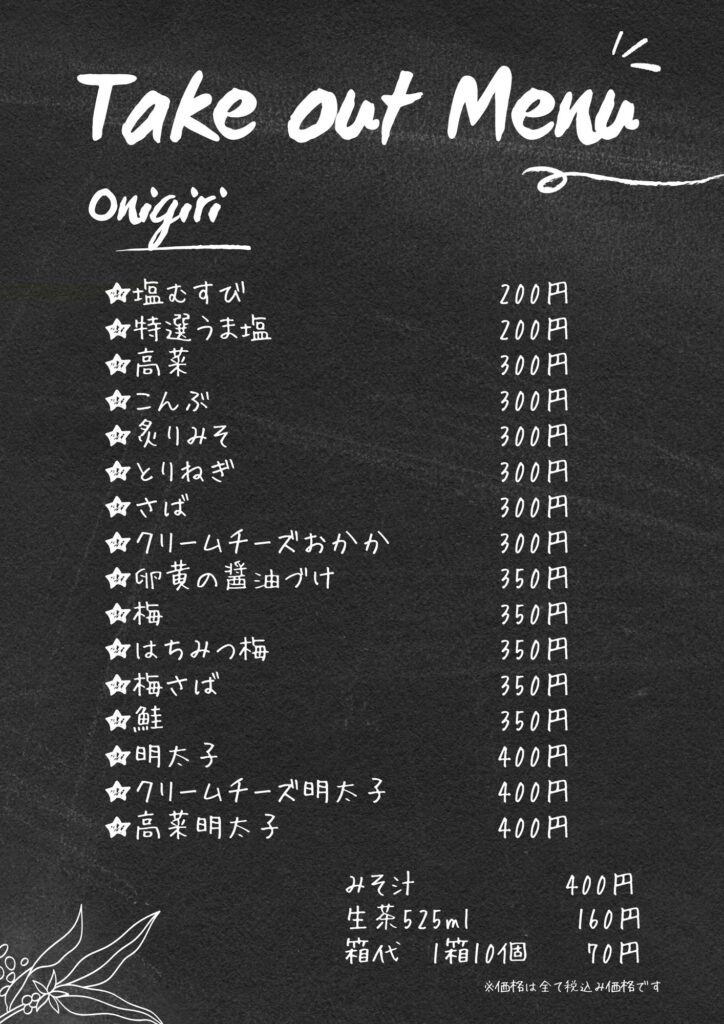 Take out Menu
Onigiri
塩むすび 200円
特選うま塩 200円
高菜 300円
こんぶ 300円
炙りみそ 300円
とりねぎ 300円
さば 300円
クリームチーズおかか 300円
卵黄の醤油づけ 350円
梅 350円
はちみつ梅 350円
梅さば 350円
鮭 350円
明太子 400円
クリームチーズ明太子 400円
高菜明太子 400円
みそ汁 400円
生茶525ml 160円
箱代 1箱10個 70円
※価格は全て税込み価格です